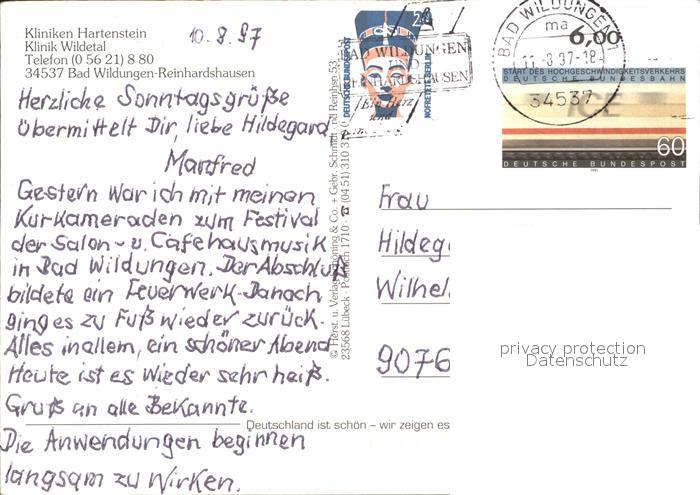 Kliniken Hartenstein
Klinik Wildetal
Telefon (0 56 21) 8 80
34537 Bad Wildungen-Reinhardshausen
10.8.97
Herzliche Sonntagsgrüße
übermittelt Dir, liebe Hildegard
Manfred
Gestern war ich mit meinen
Kurkameraden zum Festival
der Salon- u. Cafehausmusik
in Bad Wildungen. Der Abschluß
bildete ein Feuerwerk. Danach
ging es zu Fuß wieder zurück.
Alles in allem, ein schöner Abend
Heute ist es wieder sehr heiß.
Gruß an alle Bekannte.
Die Anwendungen beginnen
langsam zu wirken.
Deutschland ist schön – wir zeigen es
© Herst. u. Verlag Schöning & Co. + Gebr. Schmidt
23568 Lübeck · Postfach 1710 · ☎ (04 51) 310 3
DEUTSCHE BUNDESPOST
20
NOFRETETE BERLIN
BAD WILDUNGEN
UND
REINHARDSHAUSEN
Ein Herz
und
BAD WILDUNGEN
ma
11.-8.97-18
34537
6,00
START DES HOCHGESCHWINDIGKEITSVERKEHRS
DEUTSCHE BUNDESBAHN
ICE
60
DEUTSCHE BUNDESPOST
1991
Frau
Hildeg
Wilhel
9076
privacy protection
Datenschutz